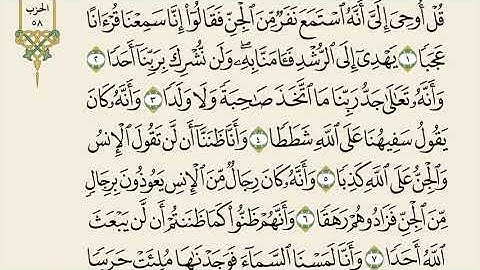 الحزب
٥٨
قُلْ أُوحِيَ إِلَيَّ أَنَّهُ ٱسْتَمَعَ نَفَرٌ مِّنَ ٱلْجِنِّ فَقَالُوٓا۟ إِنَّا سَمِعْنَا قُرْءَانًا
عَجَبًا ١ يَهْدِىٓ إِلَى ٱلرُّشْدِ فَـَٔامَنَّا بِهِۦ ۖ وَلَن نُّشْرِكَ بِرَبِّنَآ أَحَدًا ٢
وَأَنَّهُۥ تَعَـٰلَىٰ جَدُّ رَبِّنَا مَا ٱتَّخَذَ صَـٰحِبَةً وَلَا وَلَدًا ٣ وَأَنَّهُۥ كَانَ
يَقُولُ سَفِيهُنَا عَلَى ٱللَّهِ شَطَطًا ٤ وَأَنَّا ظَنَنَّآ أَن لَّن تَقُولَ ٱلْإِنسُ
وَٱلْجِنُّ عَلَى ٱللَّهِ كَذِبًا ٥ وَأَنَّهُۥ كَانَ رِجَالٌ مِّنَ ٱلْإِنسِ يَعُوذُونَ بِرِجَالٍ
مِّنَ ٱلْجِنِّ فَزَادُوهُمْ رَهَقًا ٦ وَأَنَّهُمْ ظَنُّوا۟ كَمَا ظَنَنتُمْ أَن لَّن يَبْعَثَ
ٱللَّهُ أَحَدًا ٧ وَأَنَّا لَمَسْنَا ٱلسَّمَآءَ فَوَجَدْنَـٰهَا مُلِئَتْ حَرَسًا